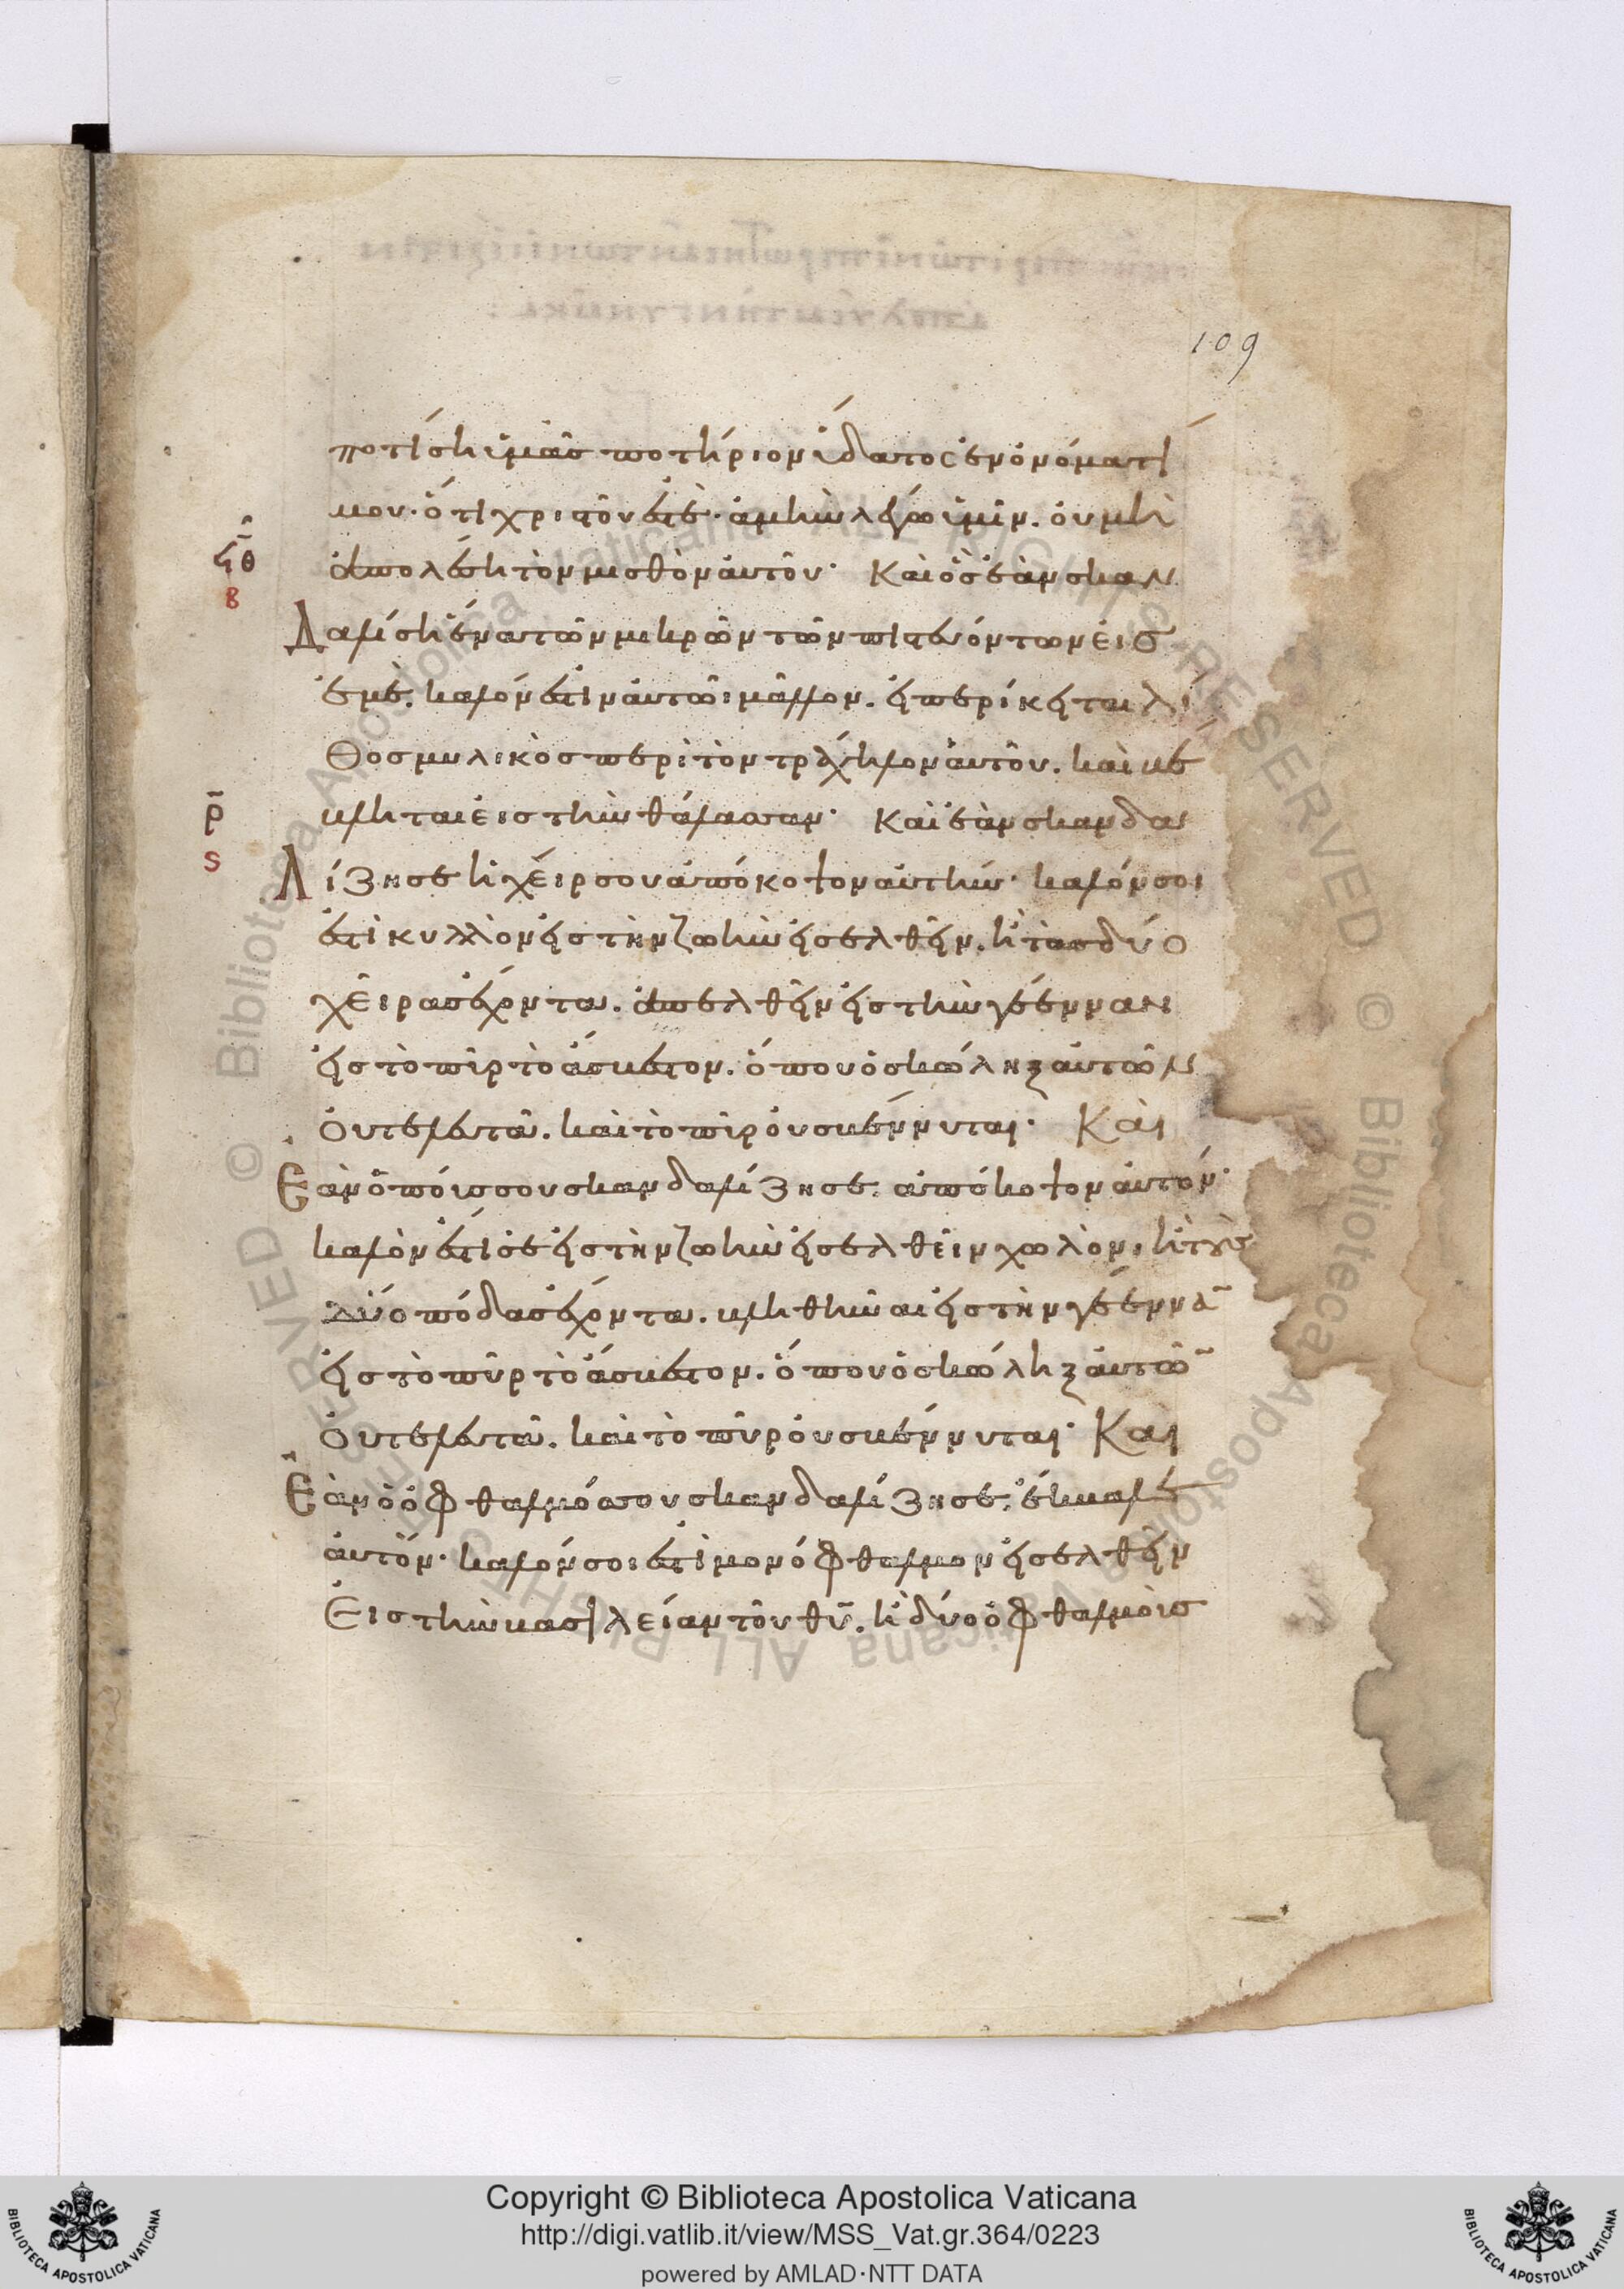 109
ποτίση ὑμᾶς ποτήριον ὕδατος ἐν ὀνόματί
μου· ὅτι χριστοῦ ἐστὲ· ἀμὴν λέγω ὑμῖν. οὐ μὴ
ἀπολέσῃ τὸν μισθὸν αὐτοῦ· Καὶ ὃς ἐὰν σκαν
ϟθ
β
δαλίση ἕνα τῶν μικρῶν τῶν πιστευόντων εἰς
ἐμὲ. καλόν ἐστιν αὐτῶι μᾶλλον. εἰ περίκειται λί
θος μυλικὸς περὶ τὸν τράχηλον αὐτοῦ. καὶ βέ
ρ
ς
βληται εἰς τὴν θάλασσαν· Καὶ ἐὰν σκανδα
λίζη σε ἡ χείρ σου ἀπόκοψον αὐτήν· καλόν σοι
ἐστὶ κυλλὸν εἰς τὴν ζωὴν εἰσελθεῖν. ἢ τὰς δύο
χεῖρας ἔχοντα. ἀπελθεῖν εἰς τὴν γέενναν
εἰς τὸ πῦρ τὸ ἄσβεστον. ὅπου ὁ σκώληξ αὐτῶν
οὐ τελευτᾶ. καὶ τὸ πῦρ οὐ σβέννυται· Καὶ
ἐὰν ὁ πούς σου σκανδαλίζη σε. ἀπόκοψον αὐτόν·
καλόν ἐστί σε εἰς τὴν ζωὴν εἰσελθεῖν χωλὸν, ἢ τοὺς
δύο πόδας ἔχοντα. βληθῆναι εἰς τὴν γέεννα̅
εἰς τὸ πῦρ τὸ ἄσβεστον. ὅπου ὁ σκώληξ αὐτῶ̅
οὐ τελευτᾶ. καὶ τὸ πῦρ οὐ σβέννυται· Και
ἐὰν ὁ ὀφθαλμός σου σκανδαλίζη σε. ἔκβαλε
αὐτόν· καλόν σοι ἐστὶ μονόφθαλμον εἰσελθεῖν
εἰς τὴν βασιλείαν τοῦ θ̅υ̅. ἢ δύο ὀφθαλμοὺς
Copyright © Biblioteca Apostolica Vaticana
http://digi.vatlib.it/view/MSS_Vat.gr.364/0223
powered by AMLAD·NTT DATA
BIBLIOTECA APOSTOLICA VATICANA
BIBLIOTECA APOSTOLICA VATICANA